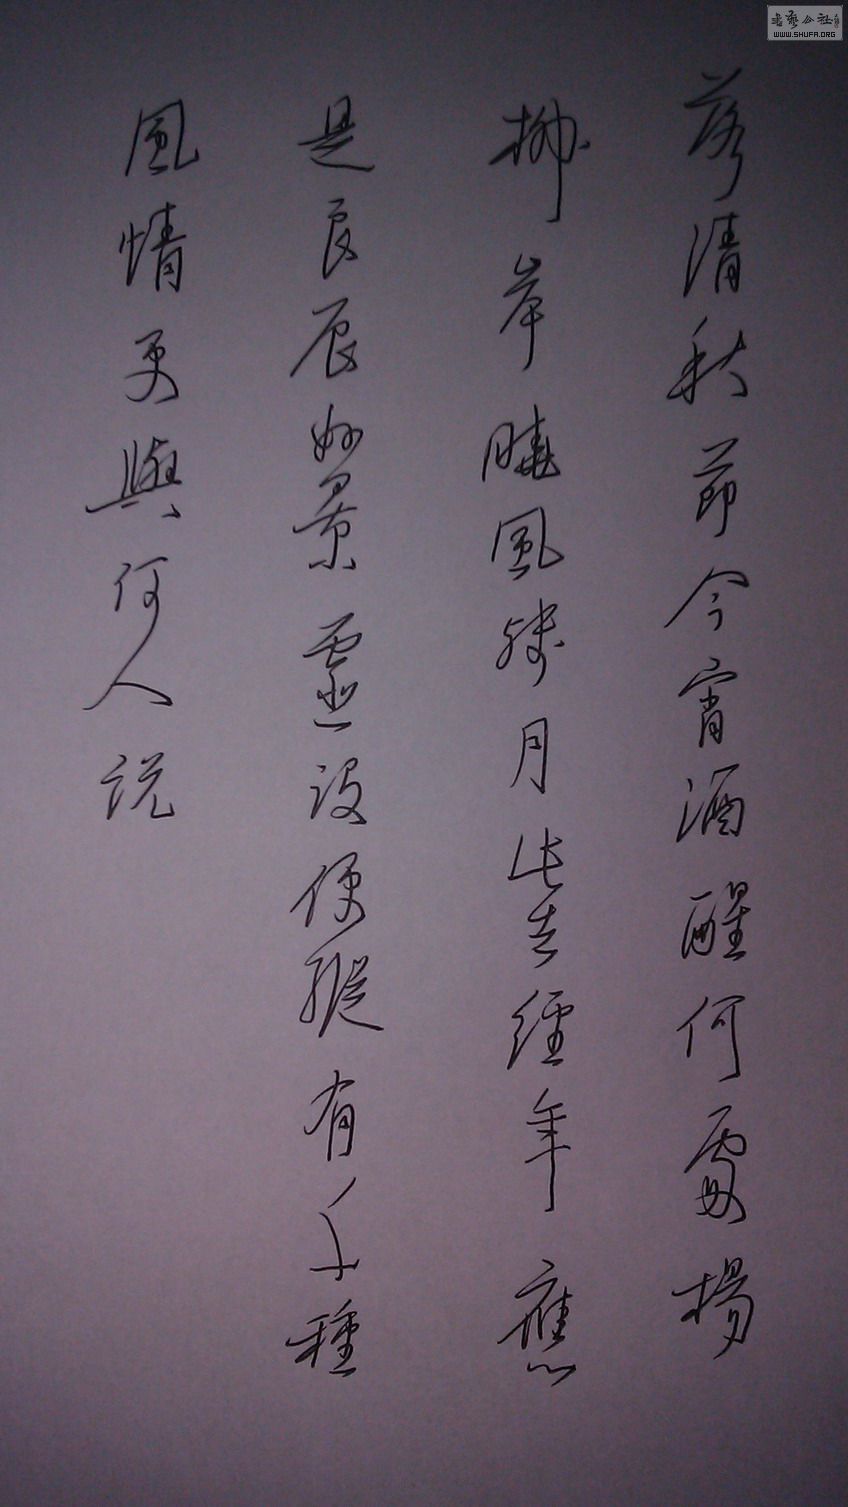 落清秋節今宵酒醒何處楊
柳岸曉風殘月此去經年應
是良辰好景虛設便縱有千種
風情更與何人説
書藝公社
WWW.SHUFA.ORG